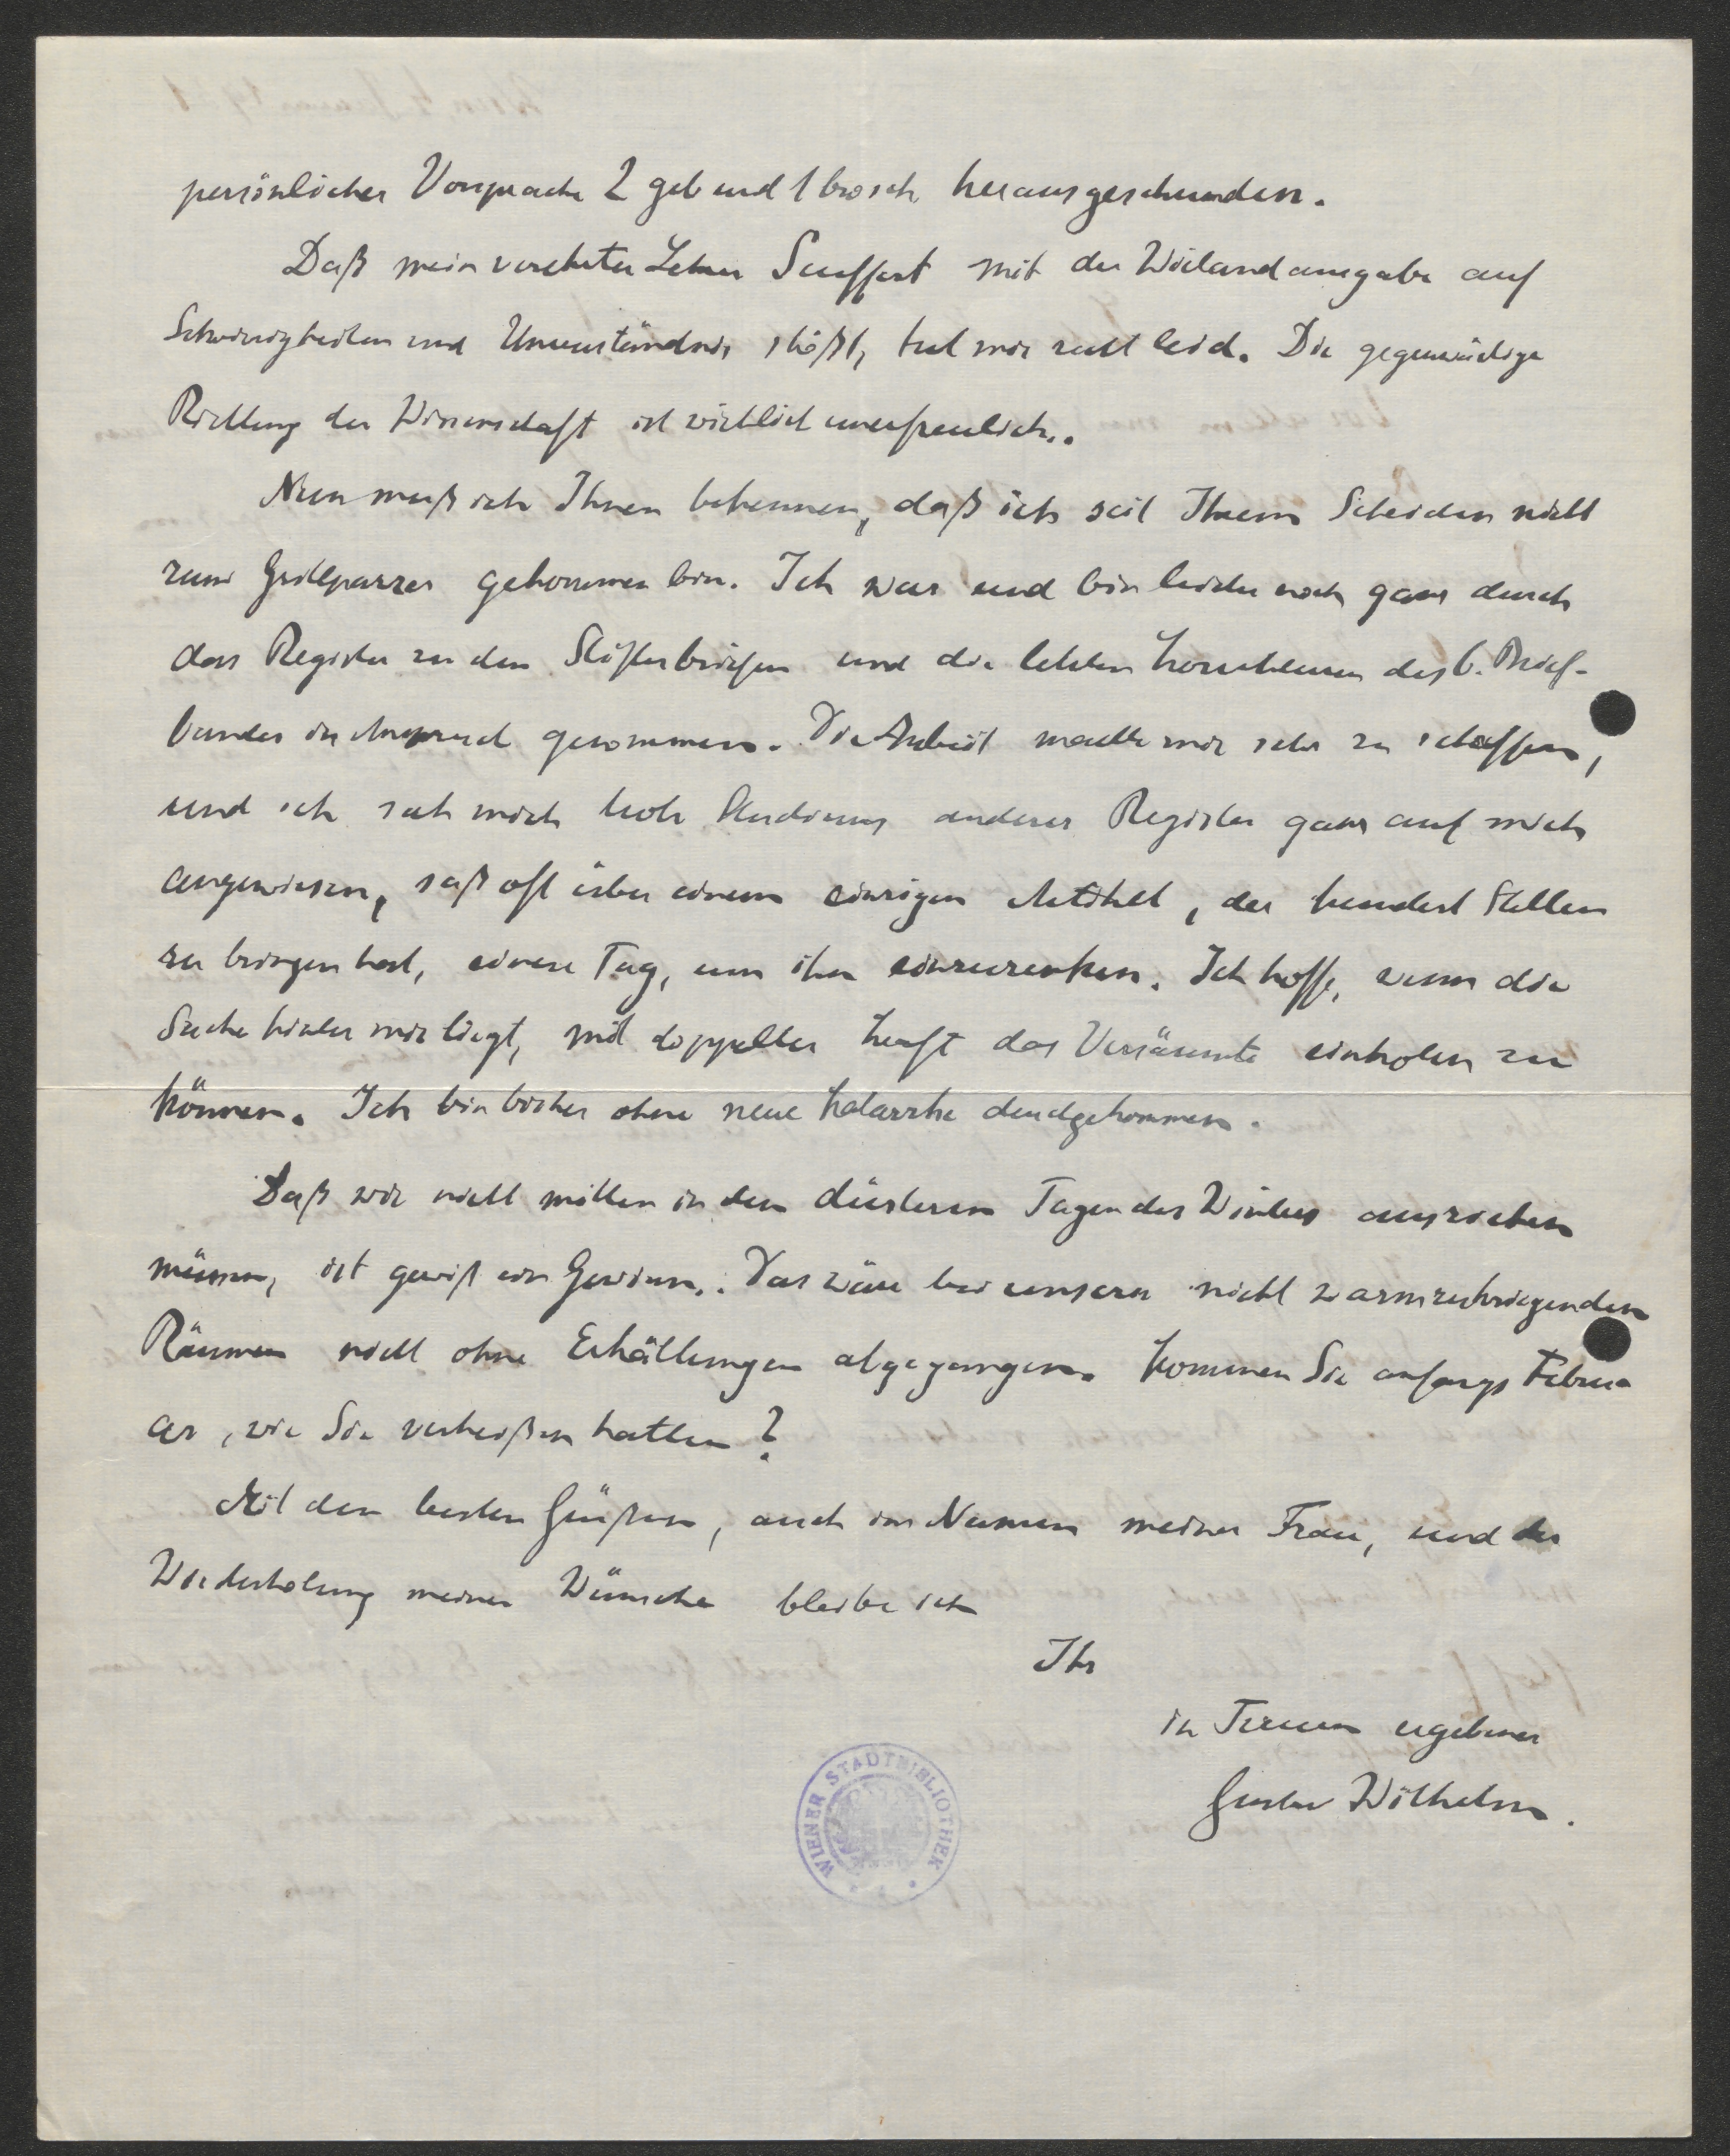 persönlicher Vorsprache 2 geb und 1 brosch herausgeschunden.
Daß mein verehrter Lehrer Seuffert mit der Wielandausgabe auf
Schwierigkeiten und Unverständnis stößt, tut mir recht leid. Die gegenwärtige
Richtung der Wissenschaft ist wirklich unerfreulich.
Nun muß ich Ihnen bekennen, daß ich seit Ihrem Scheiden nicht
zum Grillparzer gekommen bin. Ich war und bin leider noch ganz durch
das Register zu den Stifterbriefen und die letzten Korrekturen des 6. Brief-
bandes in Anspruch genommen. Die Arbeit machte mir sehr zu schaffen,
und ich sah mich trotz Studiums anderer Register ganz auf mich
angewiesen, saß oft über einem einzigen Artikel, der hundert Stellen
zu bringen hat, einen Tag, um ihn einzurenken. Ich hoffe, wenn die
Sache hinter mir liegt, mit doppelter Kraft das Versäumte einholen zu
können. Ich bin bisher ohne neue Katarrhe durchgekommen.
Daß wir nicht mitten in den düsteren Tagen des Winters ausziehen
müssen, ist gewiß ein Gewinn. Das wäre bei unsern nicht warmzukriegenden
Räumen nicht ohne Erkältungen abgegangen. Kommen Sie anfangs Febru-
ar, wie Sie verheißen hatten?
Mit den besten Grüßen, auch im Namen meiner Frau, und der
Wiederholung meiner Wünsche bleibe ich
Ihr
in Treuen ergebener
Gustav Wilhelm.
WIENER STADTBIBLIOTHEK